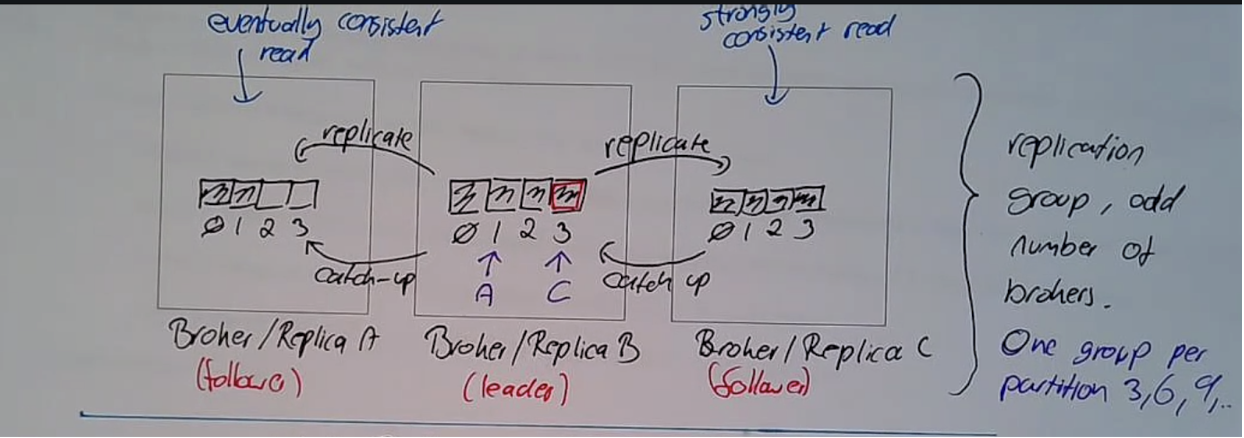 eventually consistent
read
strongly
consistent read
replicate
replicate
0 1 2 3
0 1 2 3
0 1 2 3
catch-up
catch up
A
C
Broker/Replica A
(follower)
Broker/Replica B
(leader)
Broker/Replica C
(follower)
replication
group, odd
number of
brokers.
One group per
partition 3,6,9,..